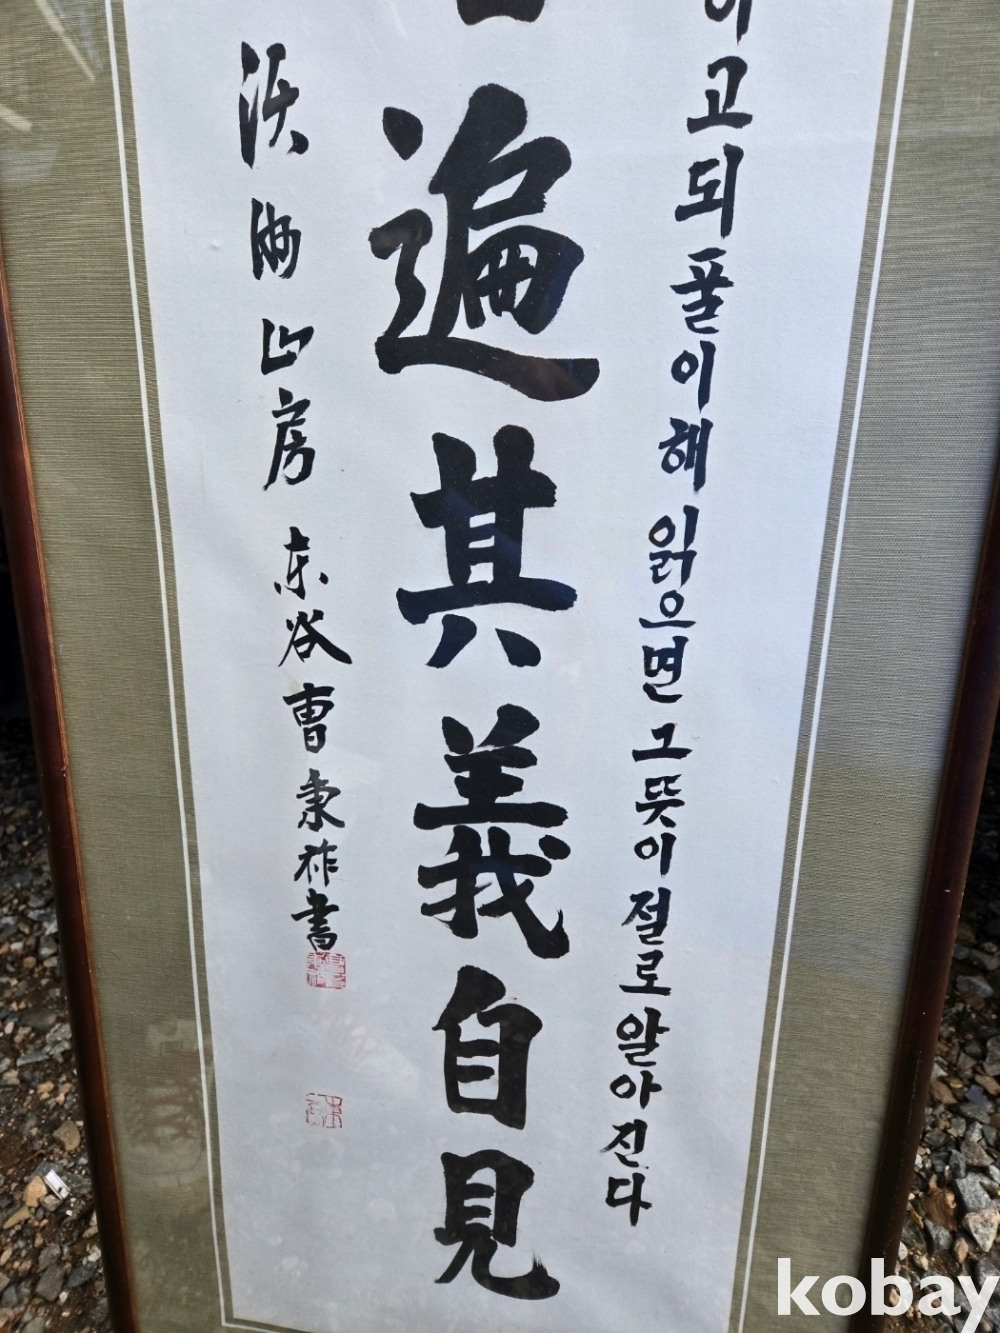 이고되풀이해읽으면그뜻이절로알아진다
遍其義自見
沃洲山房 东谷曺秉祚書
kobay